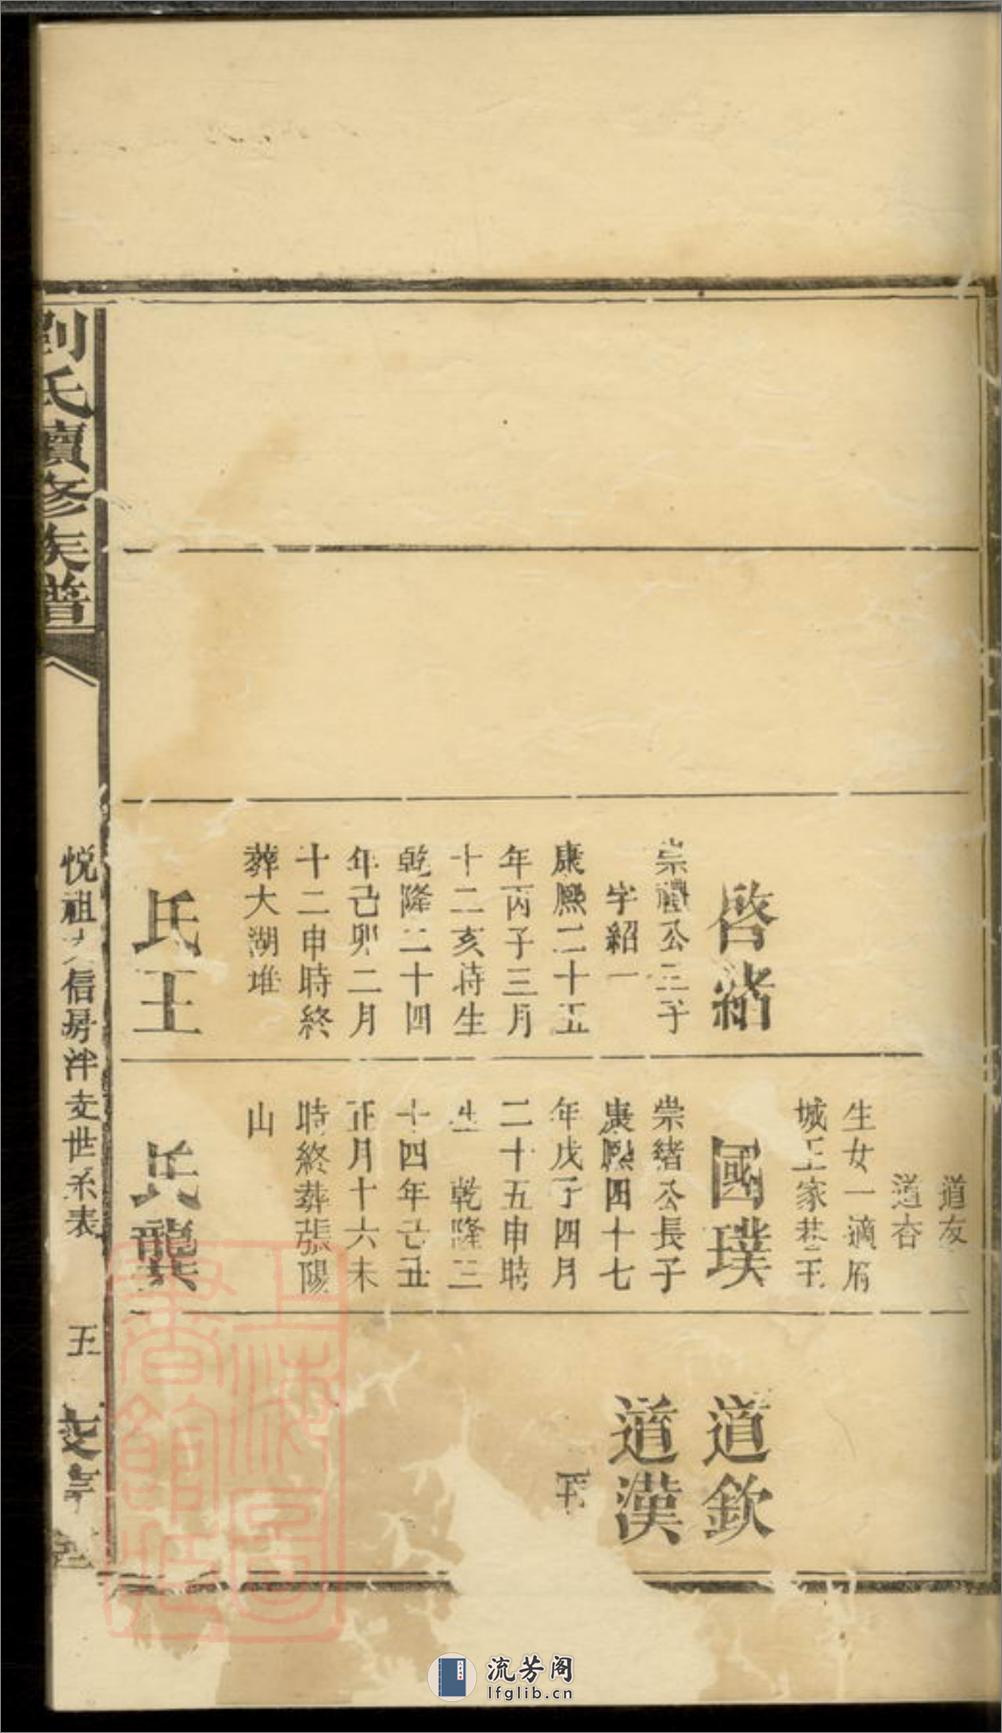 啓緒
崇禮公三子
字紹一
康熙二十五
年丙子三月
十二亥時生
乾隆二十四
年己卯二月
十二申時終
葬大湖堆
氏王
道友
道杏
生女一適眉
城王家巷王
國璞
崇緒公長子
康熙四十七
年戊子四月
二十五申時
生 乾隆三
十四年己丑
正月十六未
時終葬張陽
山
氏龔
道欽
道漢
劉氏續修族譜
悅祖大信房泮支世系表
五
上海圖書館藏
流芳阁
lfglib.cn